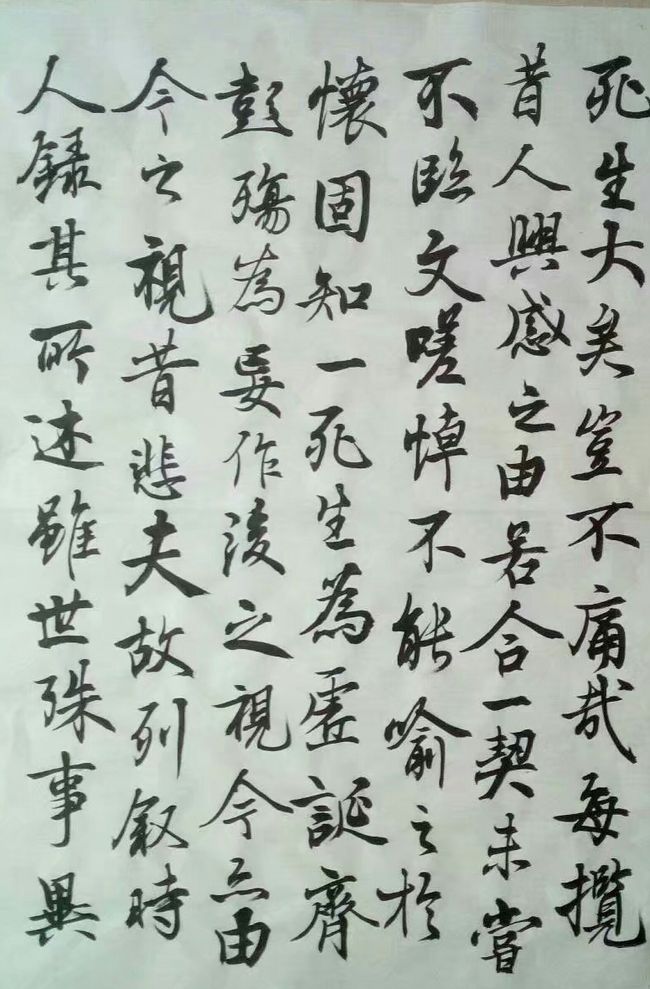 死生大矣豈不痛哉每攬
昔人興感之由若合一契未嘗
不臨文嗟悼不能喻之於
懷固知一死生為虛誕齊
彭殤為妄作後之視今亦由
今之視昔悲夫故列叙時
人錄其所述雖世殊事異